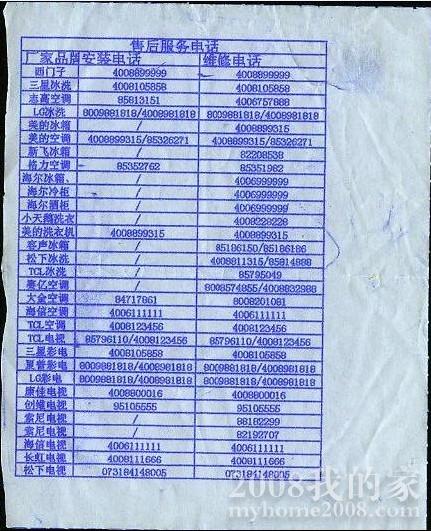 售后服务电话
厂家品牌 安装电话 维修电话
西门子 4008899999 4008899999
三星冰洗 4008105858 4008105858
志高空调 85813151 4006757888
LG冰洗 8009981818/4008981818 8009881818/4008981818
美的冰箱 / 4008899315
美的空调 4008899315/85326271 4008899315/85326271
新飞冰箱 / 82208538
格力空调 85352762 85351982
海尔冰箱、 / 4006999999
海尔冷柜 / 4006999999
海尔酒柜 / 4006999999
小天鹅洗衣 / 4008228228
美的洗衣机 4008899315 4008899315
容声冰箱 / 85186150/85186186
松下冰洗 / 4008811315/85814888
TCL冰洗 / 85795049
赛亿空调 / 8008574855/4008832988
大金空调 84717861 8008201081
海信空调 4006111111 4006111111
TCL空调 4008123456 4008123456
TCL电视 85796110/4008123456 85796110/4008123456
三星彩电 4008105858 4008105858
夏普彩电 8009881818/4008981818 8009881818/4008981818
LG彩电 8009881818/4008981818 8009881818/4008981818
康佳电视 4008800016 4008800016
创维电视 95105555 95105555
索尼电视 / 88182299
索尼电视 / 82192707
海信电视 4006111111 4006111111
长虹电视 4008111666 4008111666
松下电视 073184148005 073184148005
2008我的家
myhome2008.com